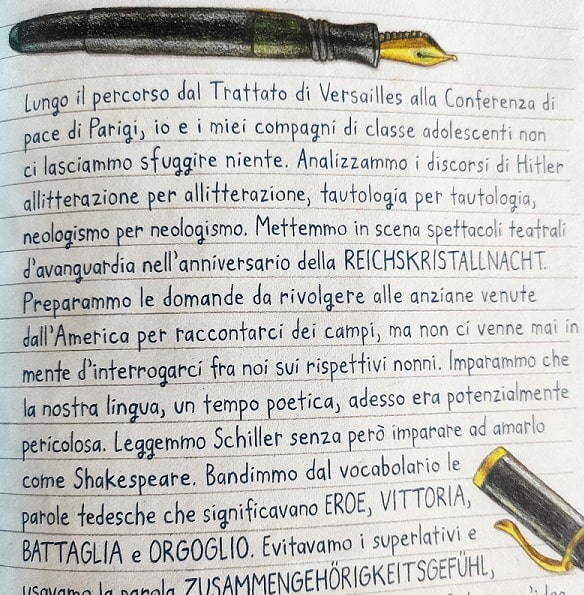 Lungo il percorso dal Trattato di Versailles alla Conferenza di
pace di Parigi, io e i miei compagni di classe adolescenti non
ci lasciammo sfuggire niente. Analizzammo i discorsi di Hitler
allitterazione per allitterazione, tautologia per tautologia,
neologismo per neologismo. Mettemmo in scena spettacoli teatrali
d'avanguardia nell'anniversario della REICHSKRISTALLNACHT.
Preparammo le domande da rivolgere alle anziane venute
dall'America per raccontarci dei campi, ma non ci venne mai in
mente d'interrogarci fra noi sui rispettivi nonni. Imparammo che
la nostra lingua, un tempo poetica, adesso era potenzialmente
pericolosa. Leggemmo Schiller senza però imparare ad amarlo
come Shakespeare. Bandimmo dal vocabolario le
parole tedesche che significavano EROE, VITTORIA,
BATTAGLIA e ORGOGLIO. Evitavamo i superlativi e
usavamo la parola ZUSAMMENGEHÖRIGKEITSGEFÜHL,